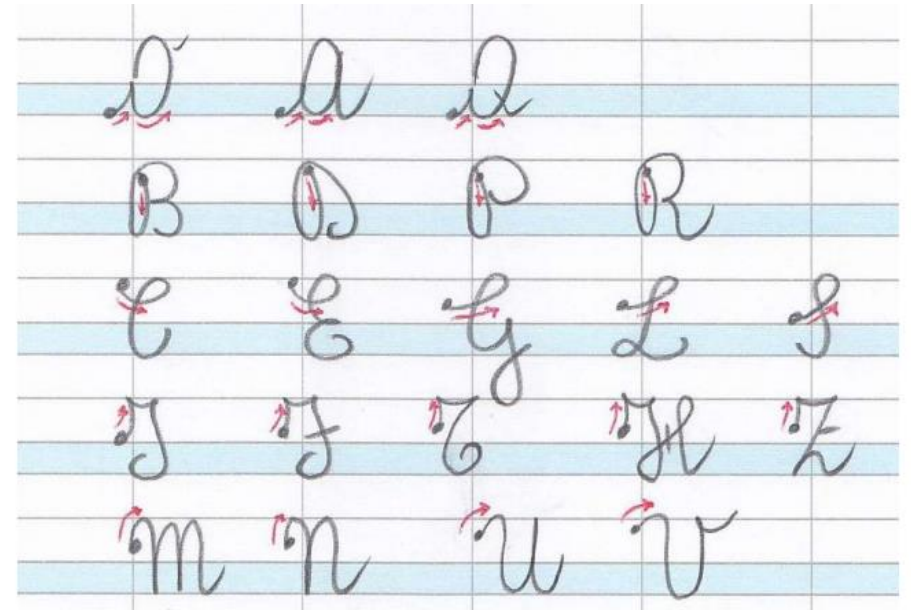 O A Q
B D P R
C E G L S
I F T H Z
M N U V